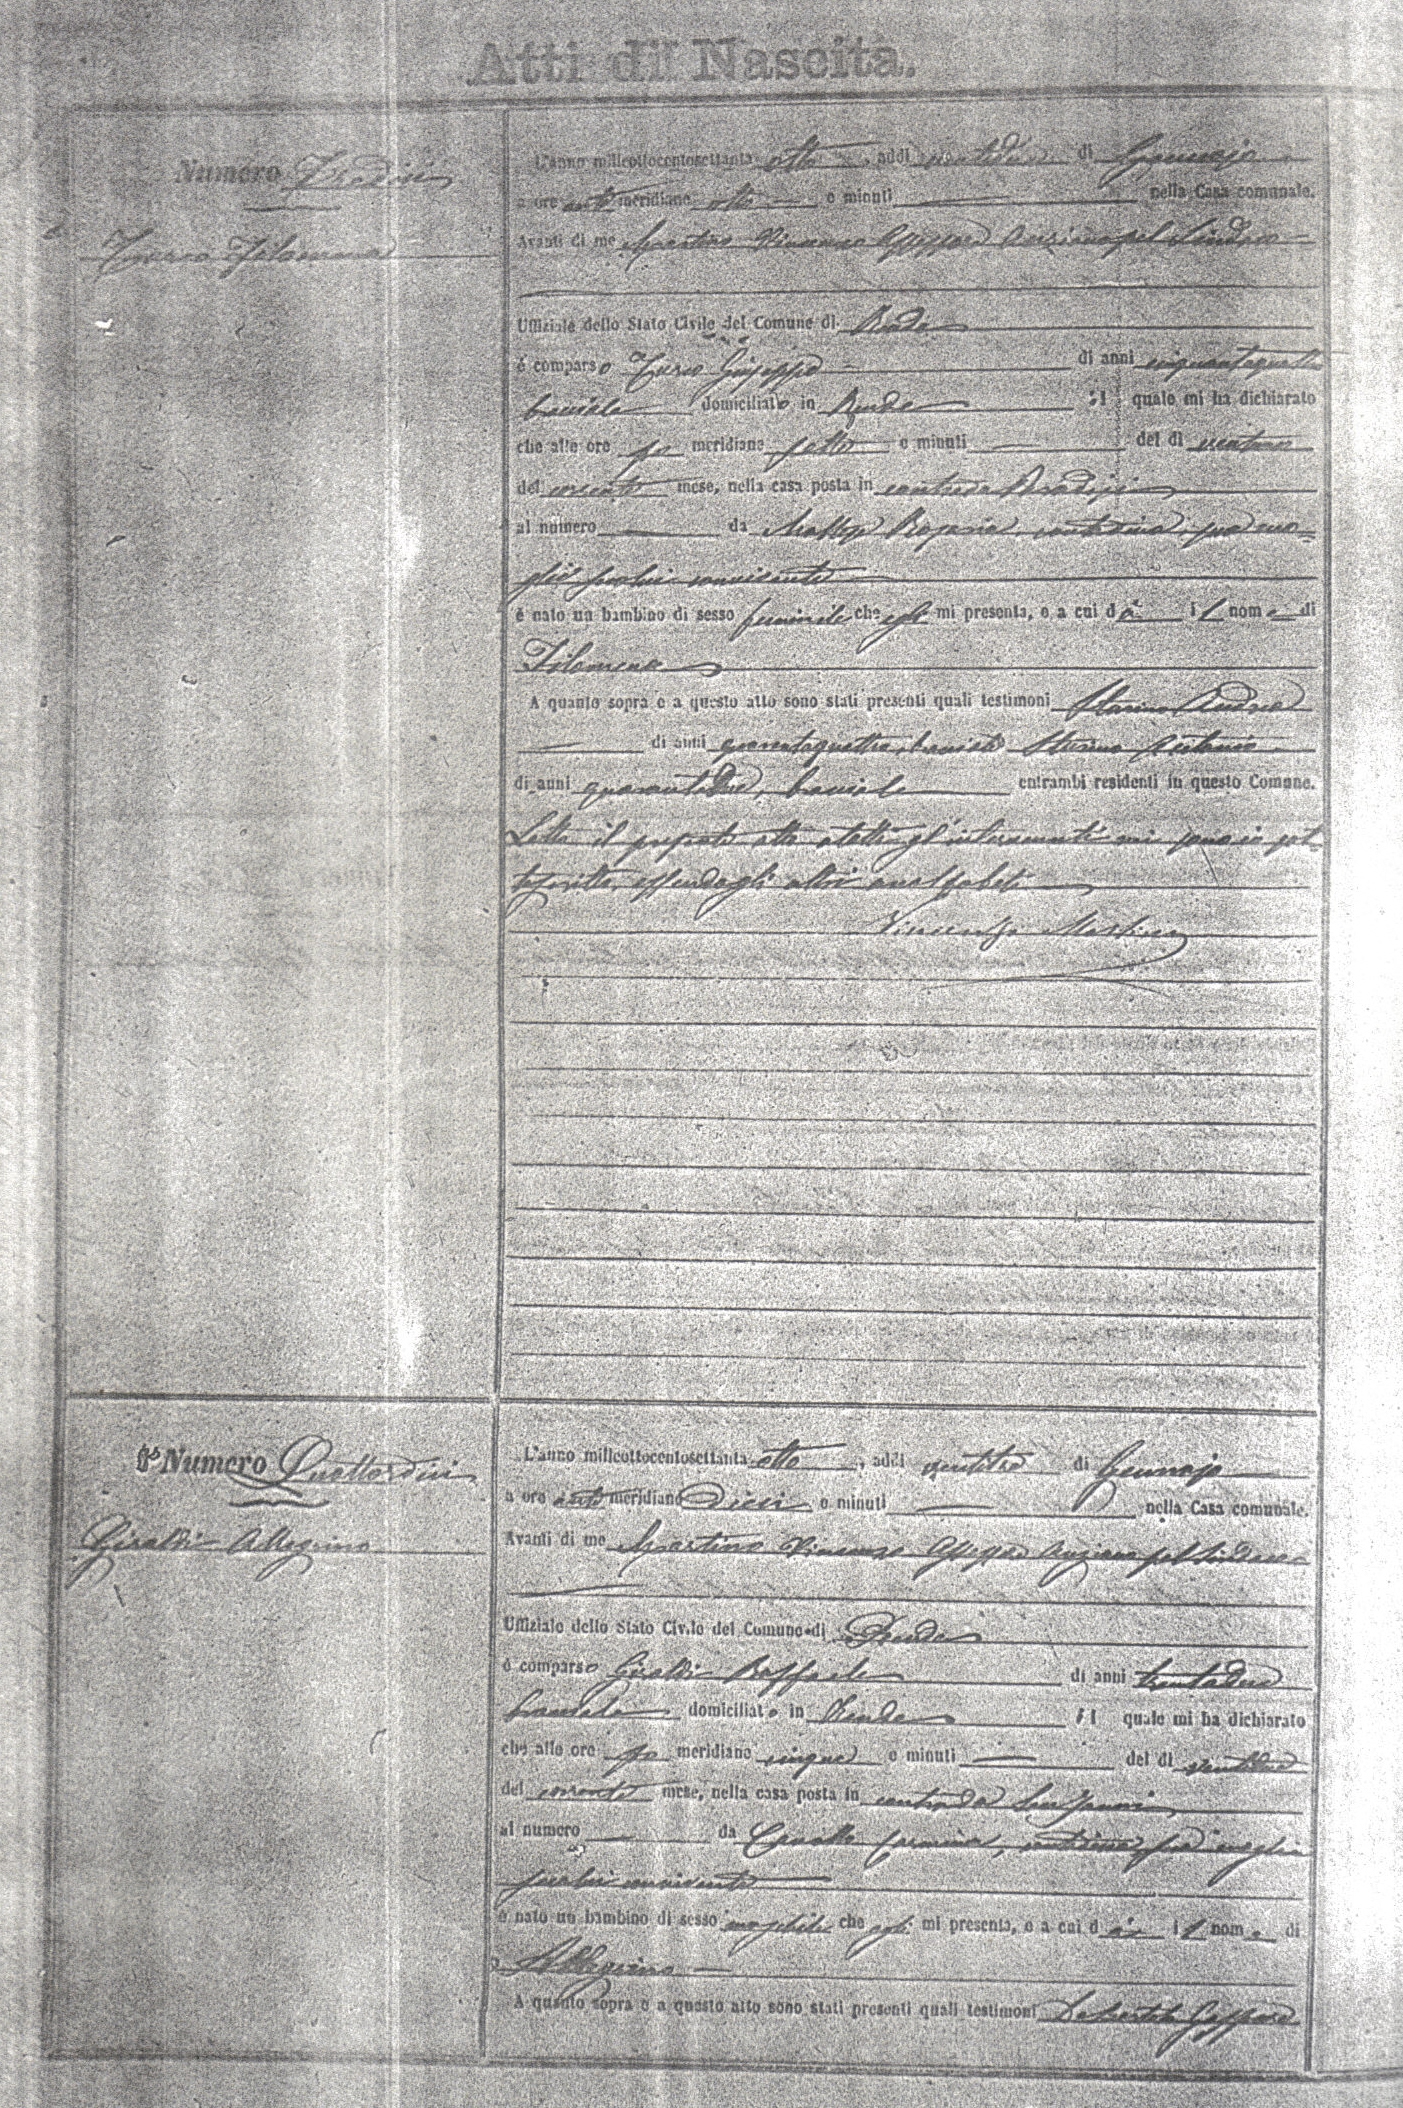 Atti di Nascita.
Numero Tredici
Turco Filomena
L'anno milleottocentosettanta otto, addì ventidue di Gennajo
a ore anti meridiane otto e minuti — nella Casa comunale.
Avanti di me Martino Vincenzo Assessore Anziano pel Sindaco
Uffiziale dello Stato Civile del Comune di Rende
è comparso Turco Giuseppe di anni cinquantaquattro
bracciale domiciliato in Rende il quale mi ha dichiarato
che alle ore po meridiane sette e minuti — del dì ventuno
del corrente mese, nella casa posta in contrada
al numero — da Rosaria, contadina, sua mo-
glie seco lui convivente
è nato un bambino di sesso femminile che egli mi presenta, e a cui dà il nome di
Filomena
A quanto sopra e a questo atto sono stati presenti quali testimoni Sturino Andrea
— di anni quarantaquattro, bracciale Sturino Antonio
di anni quarantadue, bracciale entrambi residenti in questo Comune.
Letto il presente atto a tutti gl'intervenuti mi sono io sot-
toscritto, essendo gli altri analfabeti
Vincenzo Martino
Numero Quattordici
Giraldi Allegrino
L'anno milleottocentosettanta otto, addì ventitre di Gennajo
a ore anti meridiane Dieci e minuti — nella Casa comunale.
Avanti di me Martino Vincenzo Assessore Anziano pel Sindaco
Uffiziale dello Stato Civile del Comune di Rende
è comparso Giraldi Raffaele di anni trentadue
bracciale domiciliato in Rende il quale mi ha dichiarato
che alle ore po meridiane cinque e minuti — del dì ventidue
del corrente mese, nella casa posta in contrada
al numero — da Carmina, contadina, sua moglie
seco lui convivente
è nato un bambino di sesso maschile che egli mi presenta, e a cui dà il nome di
Allegrino
A quanto sopra e a questo atto sono stati presenti quali testimoni Debartolo Gaspare